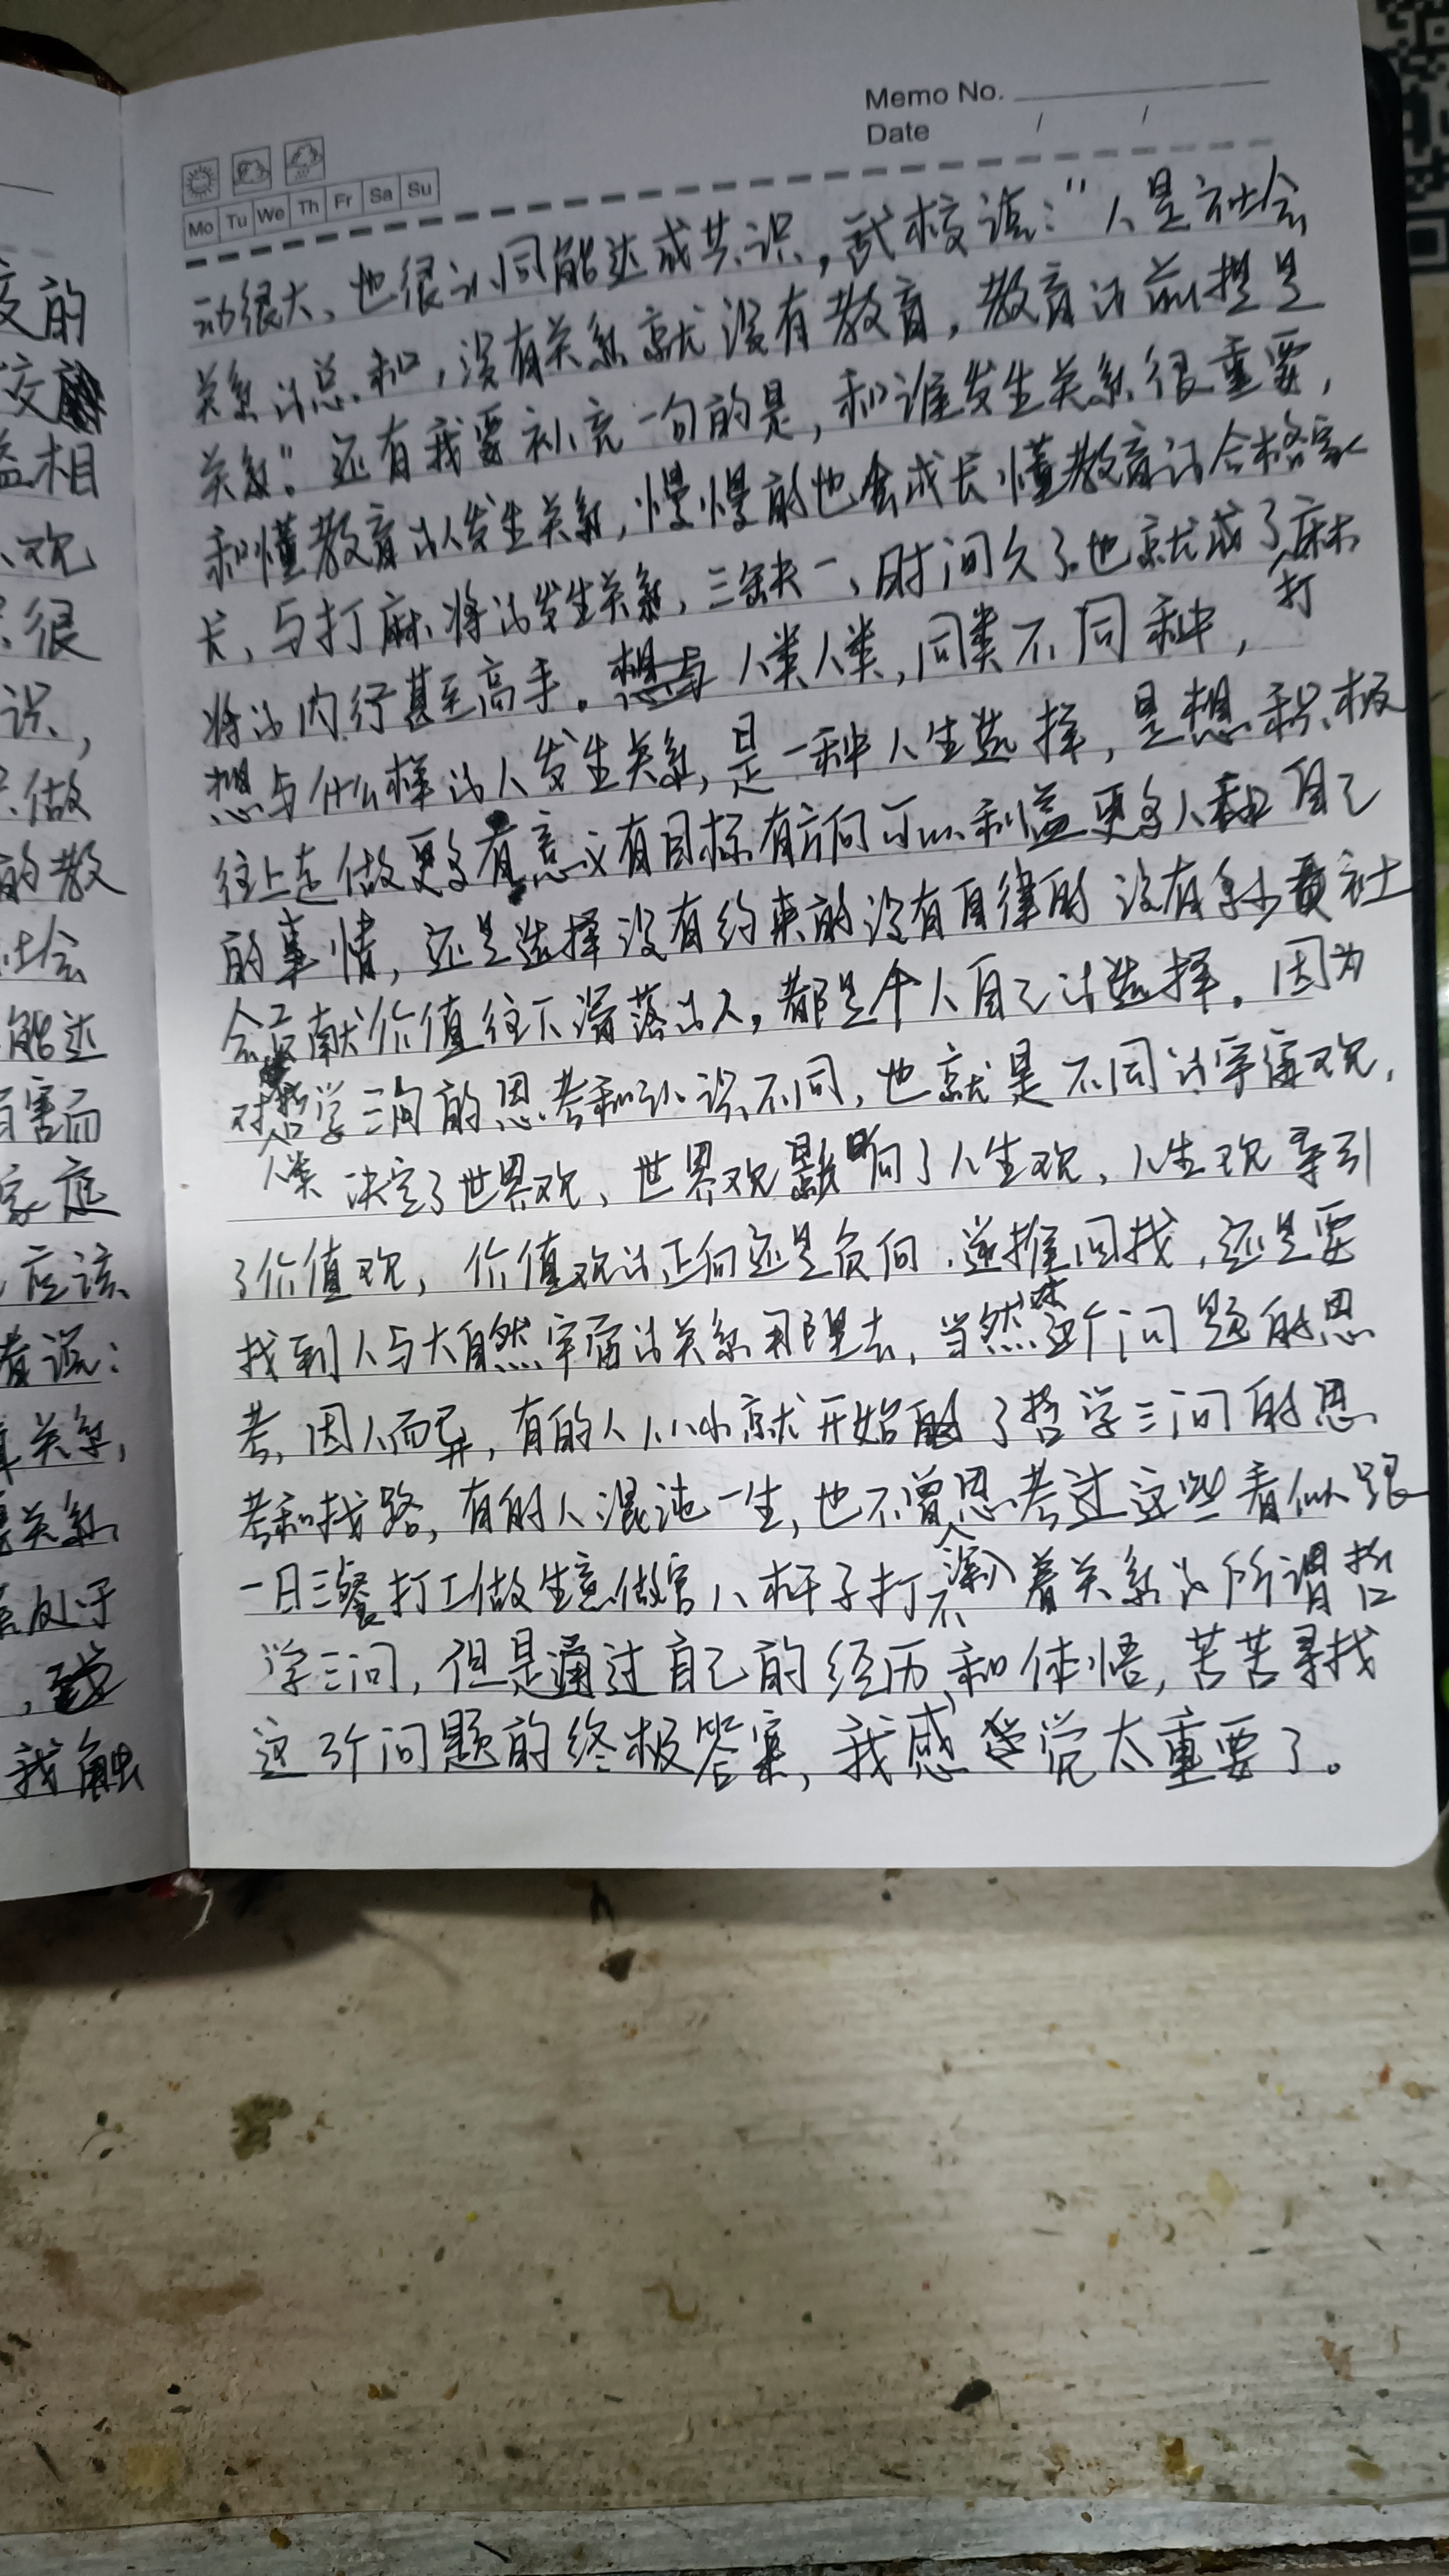 Memo No.
Date / /
Mo Tu We Th Fr Sa Su
动很大、也很认同能达成共识，武校说：“人是社会
关系的总和，没有关系就没有教育，教育的前提是
关系”。还有我要补充一句的是，和谁发生关系很重要，
和懂教育的人发生关系，慢慢的也会成长懂教育的合格家
长，与打麻将的发生关系，三缺一、时间久了也就成了打麻
将的内行甚至高手。人类人类，同类不同种，
想与什么样的人发生关系，是一种人生选择，是想积极
往上走做更多有意义有目标有方向可以利益更多人和自己
的事情，还是选择没有约束的没有自律的没有多少贡社
会贡献价值往下滑落的人，都是个人自己的选择。因为
人类对哲学三问的思考和认识不同，也就是不同的宇宙观，
决定了世界观、世界观影响了人生观，人生观牵引
了价值观，价值观的正向还是负向，逆推回找，还是要
找到人与大自然宇宙的关系那里去，当然这个问题的思
考，因人而异，有的人从小就开始了哲学三问的思
考和找路，有的人混沌一生，也不曾思考过这些看似跟
一日三餐打工做生意做官八杆子打不着关系的所谓哲
学三问，但是通过自己的经历和体悟，苦苦寻找
这3个问题的终极答案，我感觉太重要了。
的
相
观
很
识，
做
的教
社会
能达
害而
家庭
应该
者说：
关系，
关系
处于
我触